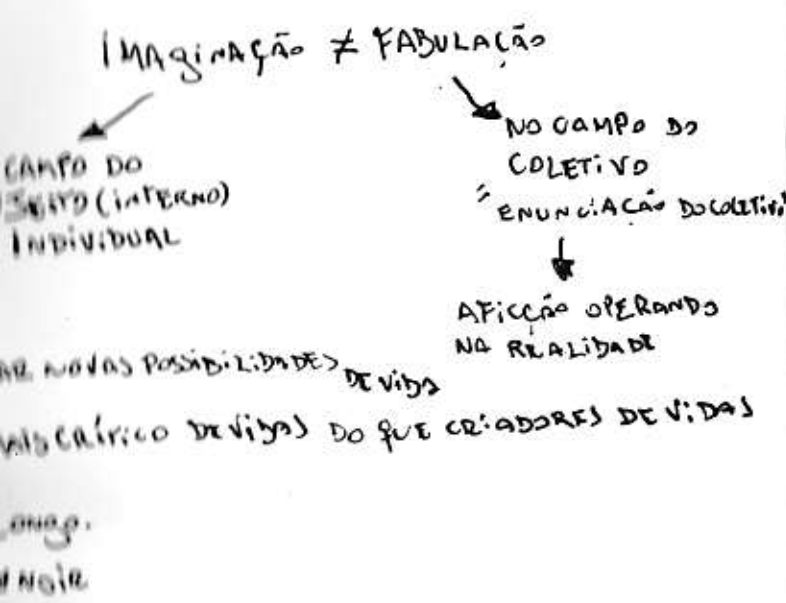 IMAGINAÇÃO ≠ FABULAÇÃO
CAMPO DO
(INTERNO)
INDIVIDUAL
NO CAMPO DO
COLETIVO
"ENUNCIAÇÃO DO COLETIVO"
A FICÇÃO OPERANDO
NA REALIDADE
AR NOVAS POSSIBILIDADES DE VIDA
CRÍTICO DE VIDAS DO QUE CRIADORES DE VIDAS
NOIR